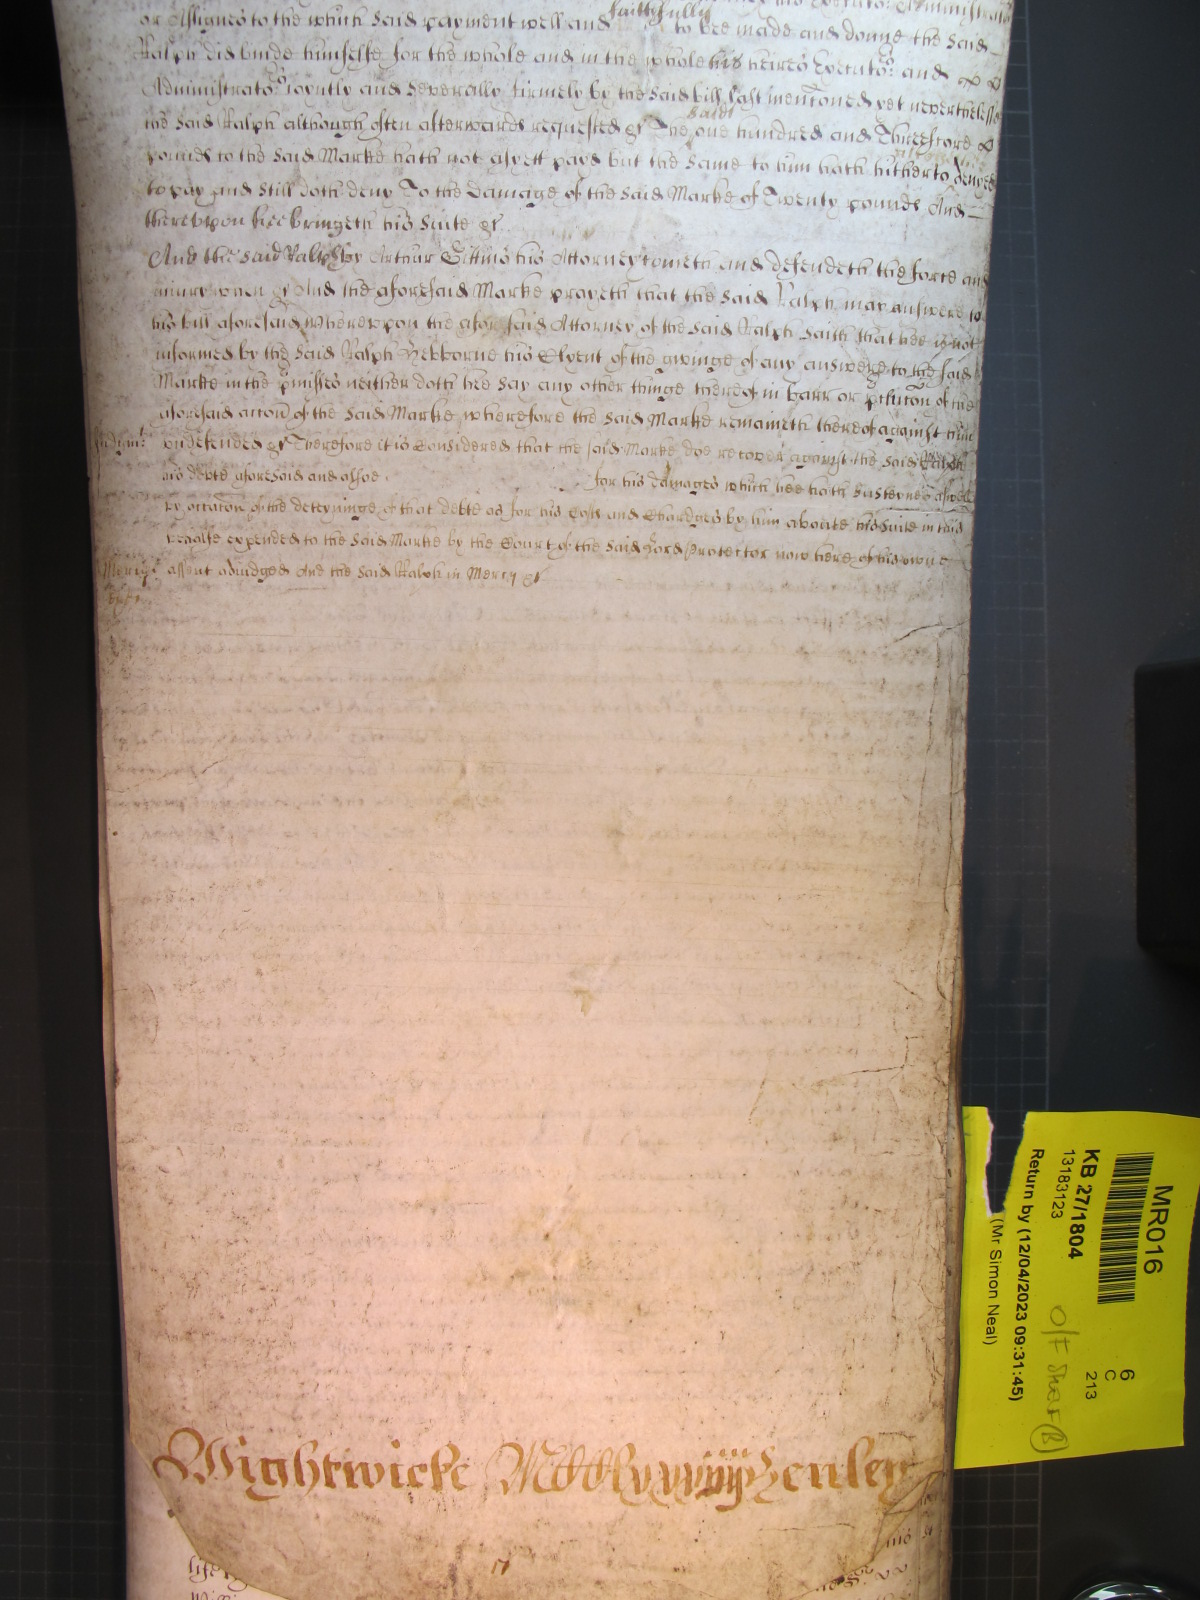 or Assignes to the which said payment well and faithfully to bee made and donne the said
Ralph did binde himselfe for the whole and in the whole his heires Executors and
Administrators joyntly and severally firmely by the said bill last menconed yet neverthelesse
the said Ralph although often afterwards requested &c The said one hundred and Threescore
pounds to the said Marke hath not as yett payd but the same to him hath hitherto denyed
to pay and still doth deny To the damage of the said Marke of Twenty pounds And
thereupon hee bringeth his suite &c
And the said Ralph by Arthur Gittins his Attorney cometh and defendeth the force and
injury when &c And the aforesaid Marke prayeth that the said Ralph may answere to
his bill aforesaid Whereupon the aforesaid Attorney of the said Ralph saith that hee is not
informed by the said Ralph Hebborne his Clyent of the giveinge of any answere to the said
Marke in the pmisses neither doth hee say any other thinge thereof in barr or pclusion of the
aforesaid accon of the said Marke wherefore the said Marke remaineth thereof against him
Judgmt undefended &c Therefore it is Considered that the said Marke doe recover against the said Ralph
his debte aforesaid and alsoe for his damages which hee hath susteyned aswell
by occasion of the deteyninge of that debte as for his Costs and Chardges by him aboute his suite in this
behalfe expended to the said Marke by the Court of the said Lord Protector now here of his owne
assent adiudged And the said Ralph in Mercy &c
Wightwicke Henley
17
MR016
KB 27/1804
13183123
Return by (12/04/2023 09:31:45)
(Mr Simon Neal)
6
C
213
O/F Shelf (B)